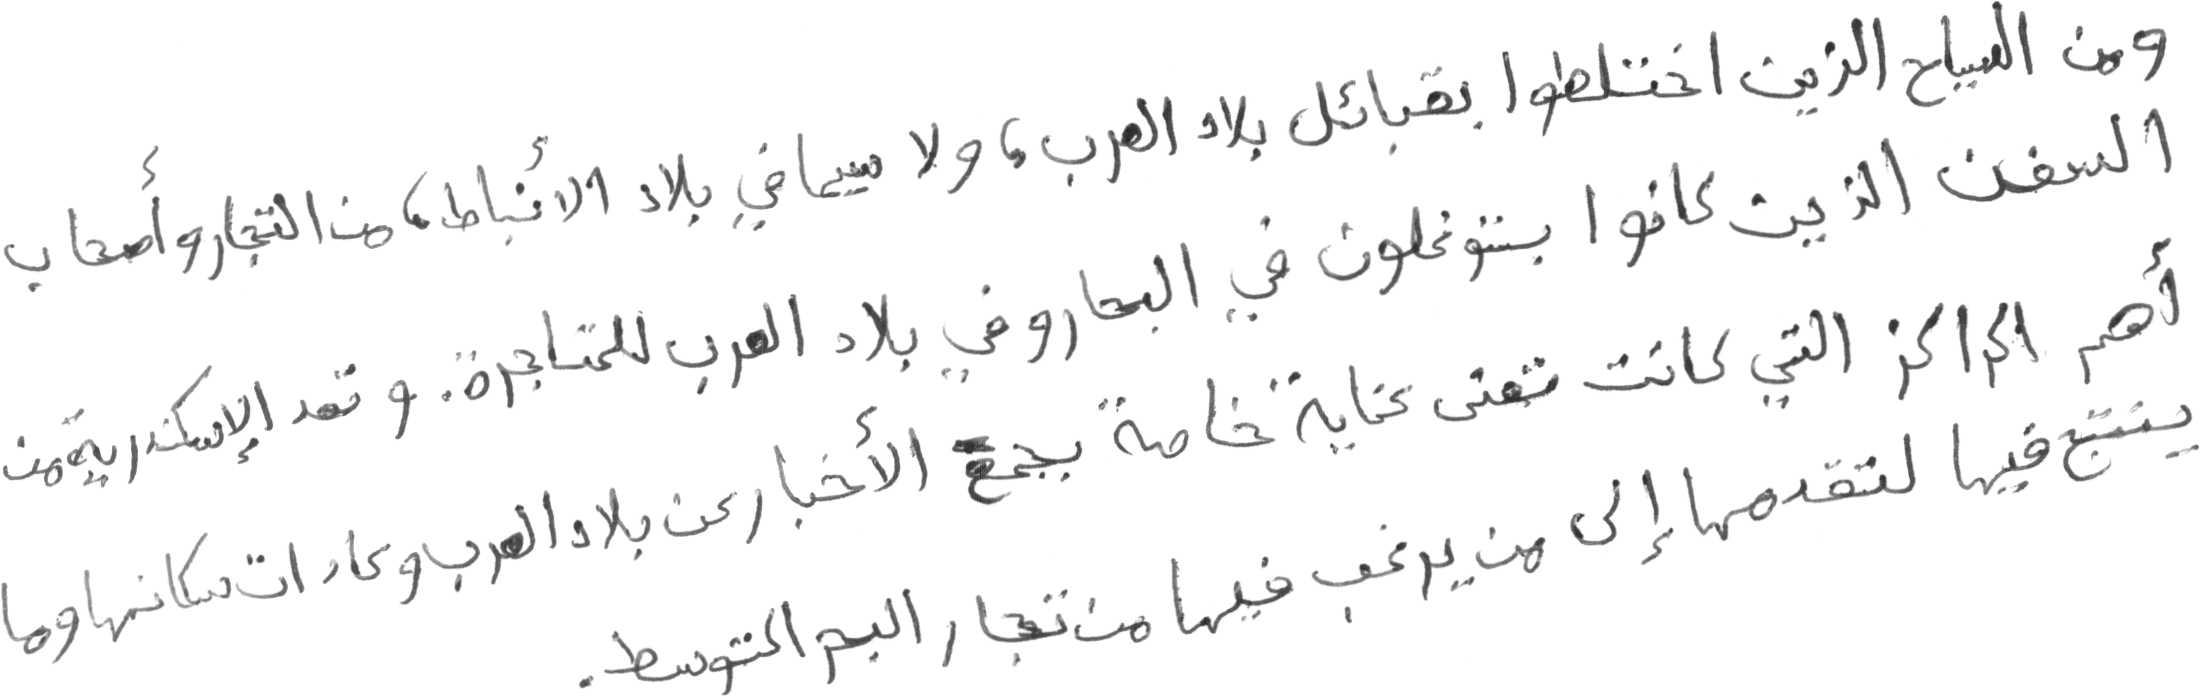 ومن السياح الذين اختلطوا بقبائل بلاد العرب، ولا سيما في بلاد الأنباط، من التجار وأصحاب
السفن الذين كانوا يتوغلون في البحار وفي بلاد العرب للمتاجرة. وتعد الإسكندرية من
أهم المراكز التي كانت تعنى عناية خاصة بجمع الأخبار عن بلاد العرب وعادات سكانها وما
ينتج فيها لتقدمها إلى من يرغب فيها من تجار البحر المتوسط.